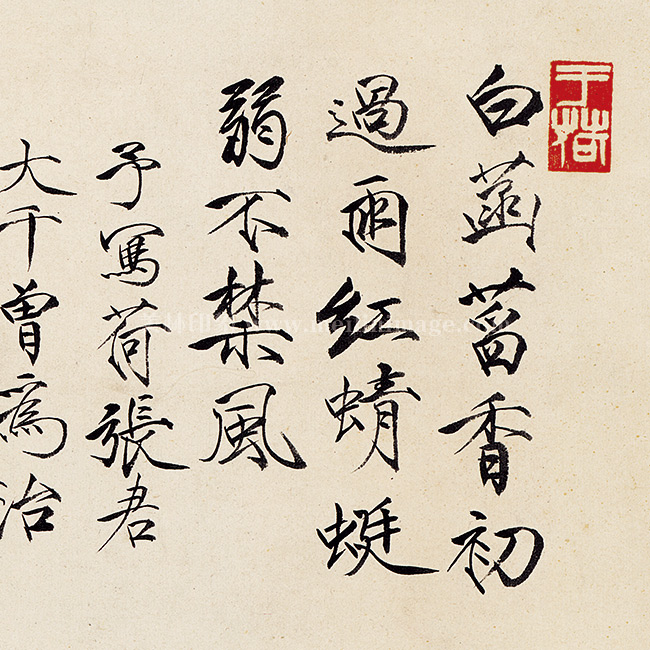 于荷
白菡萏香初
過雨紅蜻蜓
弱不禁風
予寫荷張君
大千曾為治